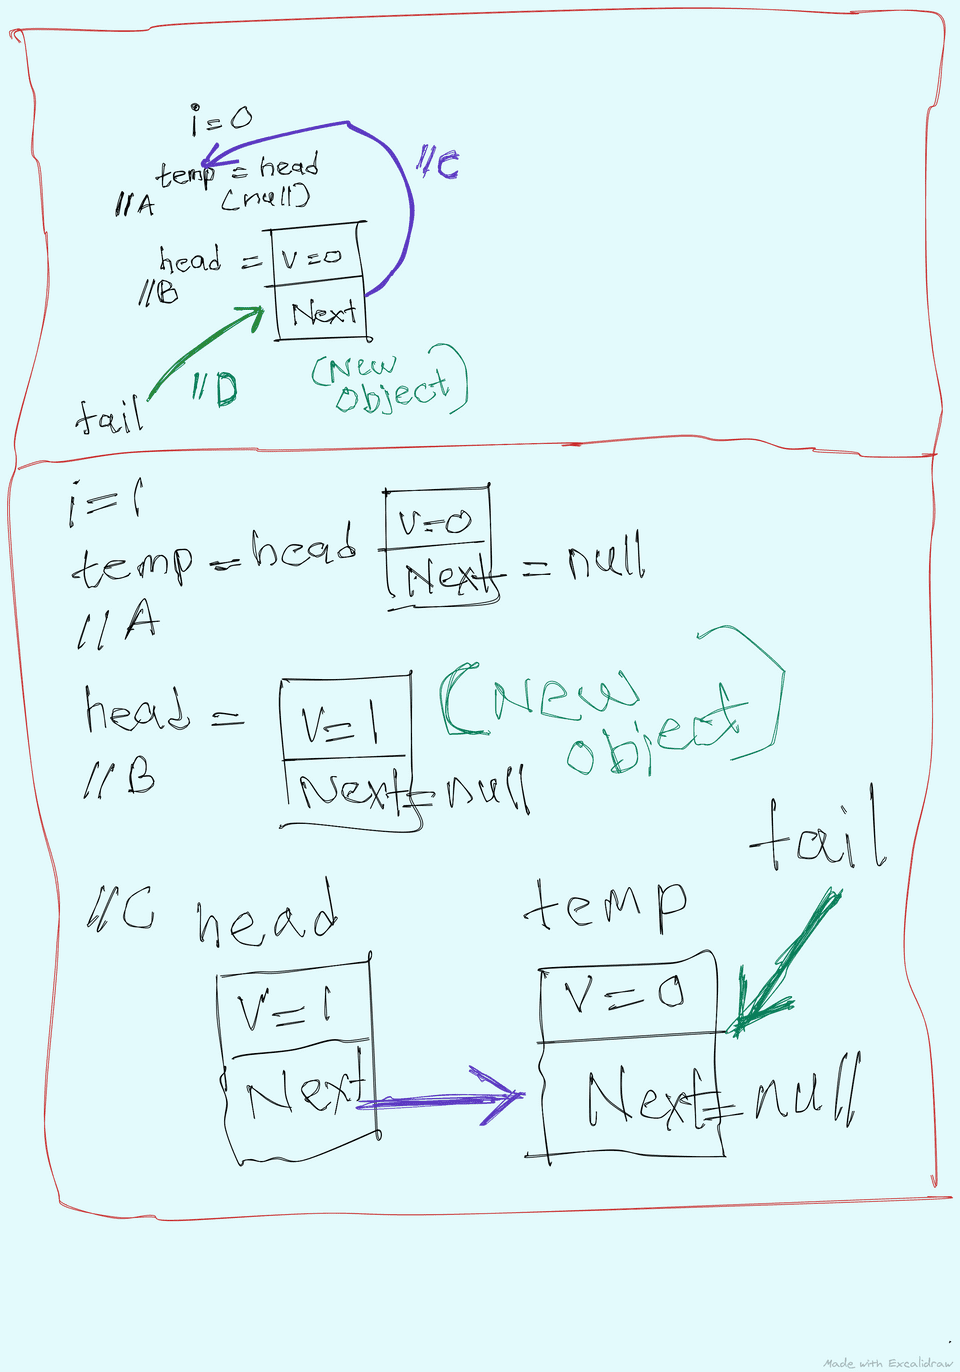 i=0
temp = head
//A (null)
//C
head = v=0
//B
Next
(New
object)
//D
tail
i=1
temp = head v=0
Next = null
//A
head = v=1
(New
object)
//B Next=null
tail
//C head temp
v=1 v=0
Next Next=null
Made with Excalidraw